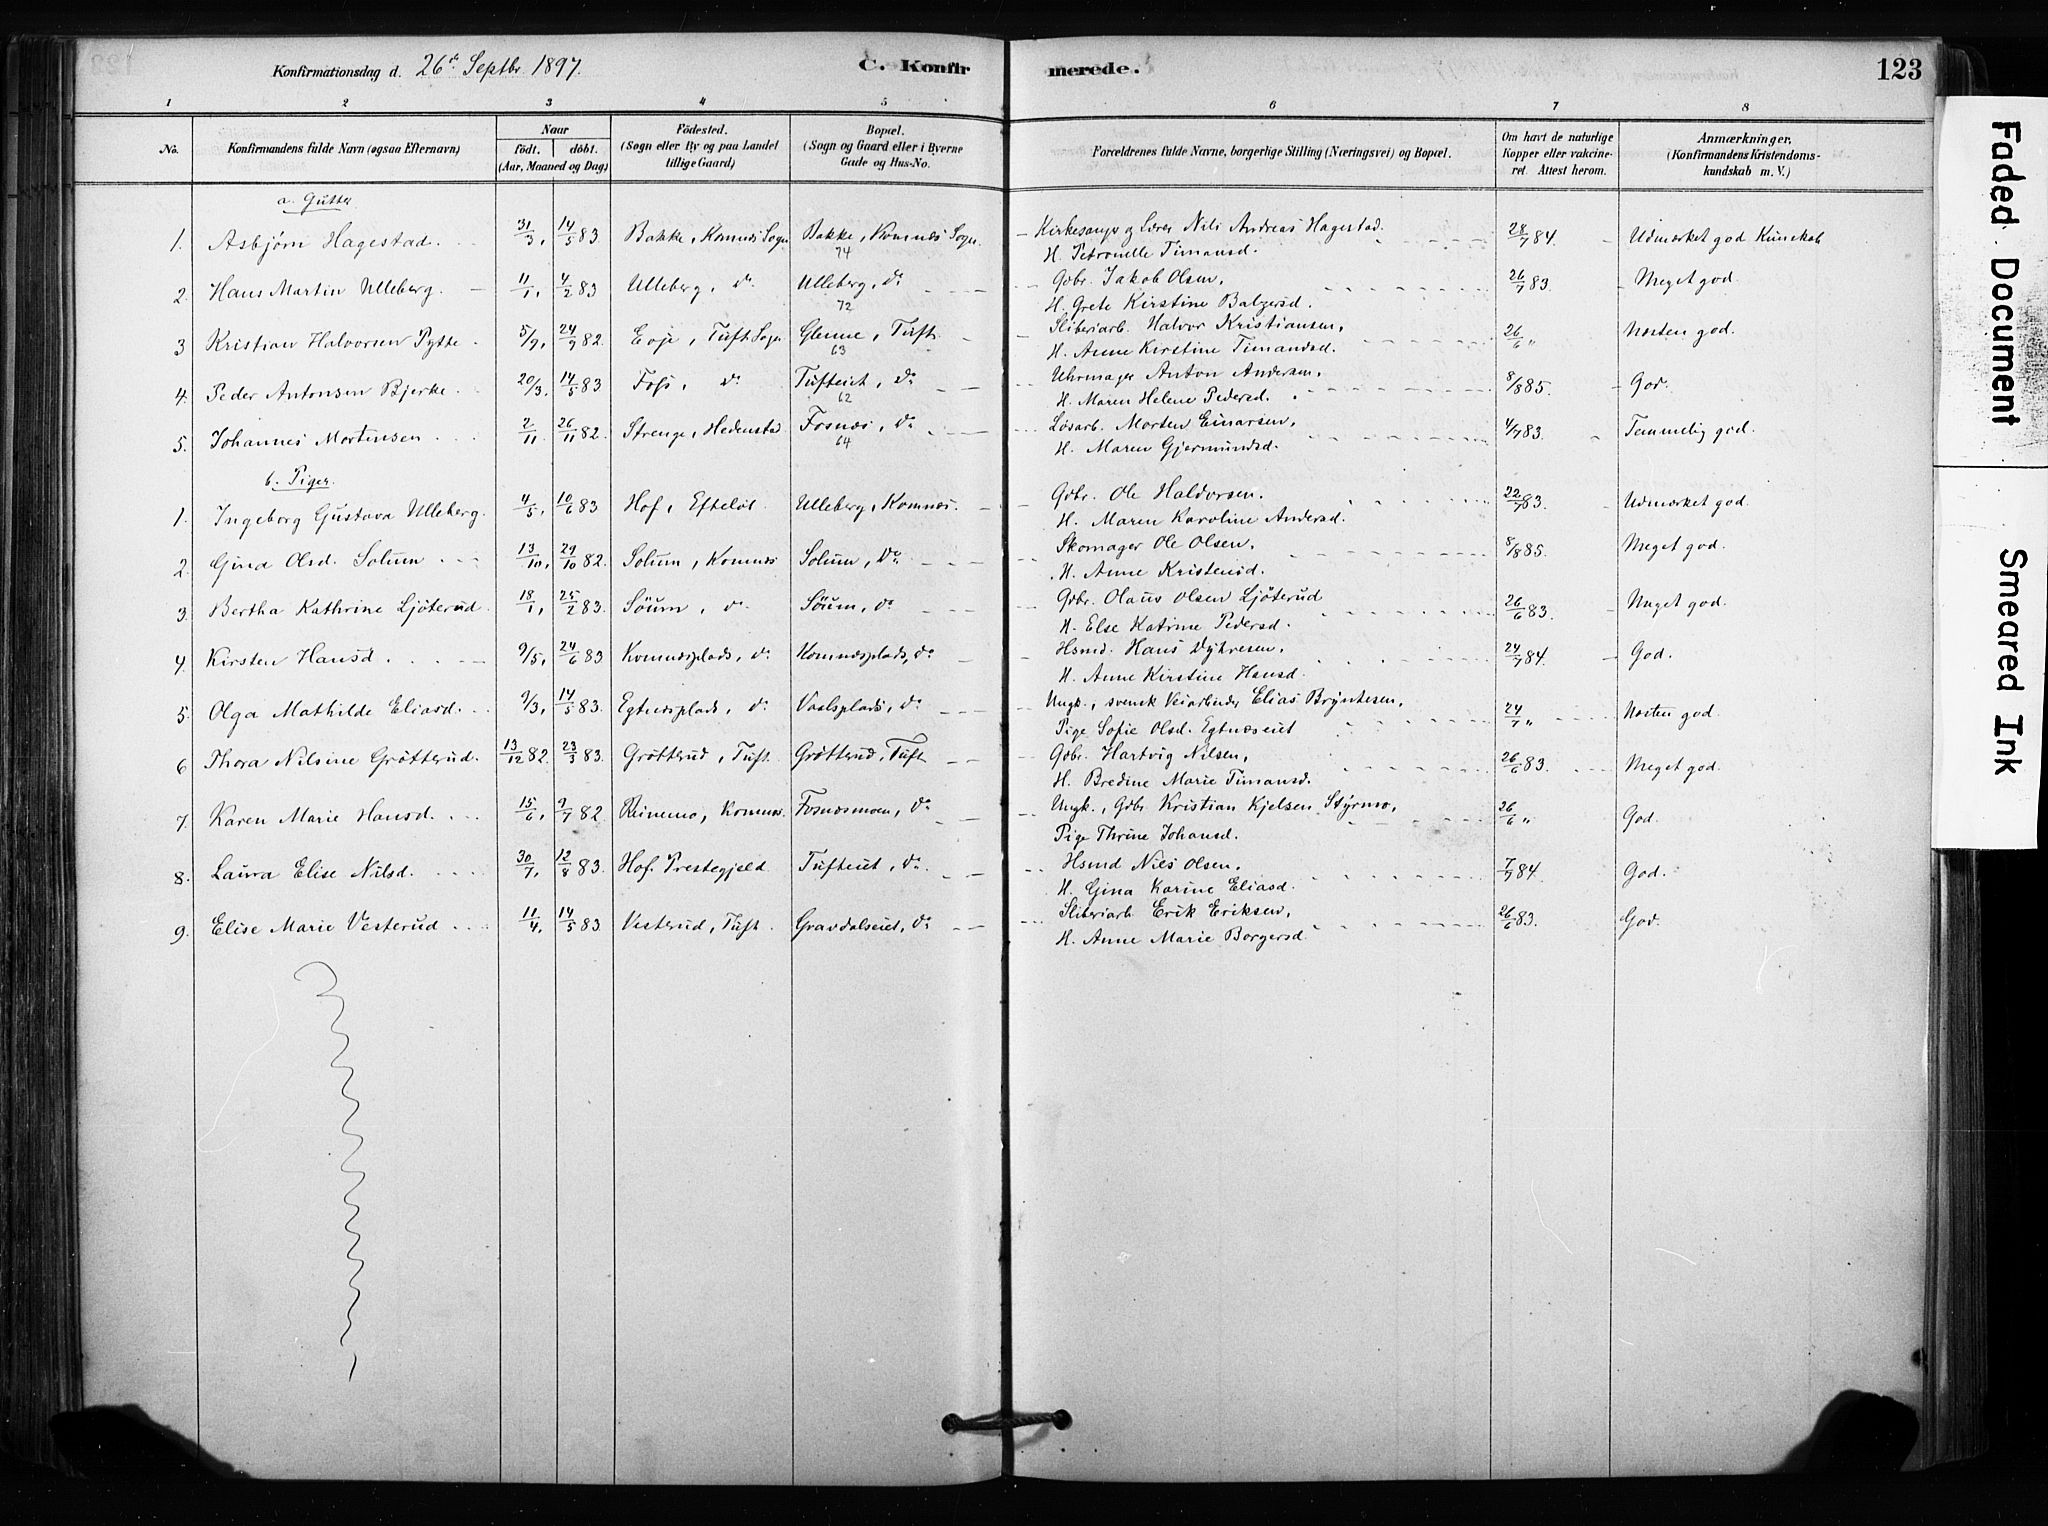 Konfirmationsdag d. 26de Septbr. 1897. C. Konfirmerede. 123
1 2 3 4 5 6 7 8
No. Konfirmandens fulde Navn (ogsaa Efternavn) Naar födt. döbt. (Aar, Maaned og Dag) Födested. (Sogn eller By og paa Landet tillige Gaard) Bopæl. (Sogn og Gaard eller i Byerne Gade og Hus-No. Forældrenes fulde Navne, borgerlige Stilling (Næringsvei) og Bopæl. Om havt de naturlige Kopper eller vakcineret. Attest herom. Anmærkninger, (Konfirmandens Kristendomskundskab m. V.)
a. Gutter
1. Asbjørn Hagestad. 31/3, 14/5 83. Bakke, Komnæs Sogn Bakke, Komnæs Sogn. 74 Kirkesanger og Lærer Nils Andreas Hagestad. 28/7 84. Udmærket god Kunskab
H. Petronelle Timansd.
2. Hans Martin Ulleberg. 11/1, 4/2 83 Ulleberg, do Ulleberg, do 72 Gdbr. Jakob Olsen, 26/7 83. Meget god.
H. Grete Kirstine Balzersd.
3 Kristian Halvorsen Pytte. 5/9, 24/9 82. Evje, Tuft Sogn Glenne, Tuft. 63 Sliberiarb. Halvor Kristiansen, 26/6 " Næsten god.
H. Anne Kirstine Timandsd.
4. Peder Antonsen Bjerke. 20/3, 14/5 83 Foss, do Tufteiet, do 62 Uhrmager Anton Andersen, 8/8 85. God.
H. Maren Helene Pedersd.
5. Johannes Mortensen 2/11, 26/11 82. Strenge, Hedenstad Fosnæs, do 64 Løsarb. Morten Einarsen, 4/7 83. Temmelig god.
H. Maren Gjermundsd.
b. Piger.
1. Ingeborg Gustava Ulleberg. 4/5, 10/6 83 Hof, Efteløt. Ulleberg, Komnæs. Gdbr. Ole Haldorsen. 22/7 83. Udmærket god.
H. Maren Karoline Andersd.
2. Gina Olsd. Solum 13/10, 29/10 82. Solum, Komnæs Solum, do. Skomager Ole Olsen, 8/8 85. Meget god.
H. Anne Kristensd.
3. Bertha Kathrine Ljöterud. 18/1, 25/2 83. Söum, do Söum, do Gdbr. Olaus Olsen Ljöterud 26/6 83. Meget god.
H. Else Katrine Pedersd.
4. Kirsten Hansd. 9/5, 24/6 83 Komnæsplads, do Komnæsplads, do Hsmd. Hans Dyhresen, 24/7 84. God.
H. Anne Kirstine Hansd.
5. Olga Mathilde Eliasd. 9/3, 14/5 83. Egtnesplads, do Vaalsplads, do Ungk., svensk Veiarbeider Elias Bryntesen, 24/7 " Næsten god.
Pige Sofie Olsd. Egtnæseiet
6 Thora Nilsine Gröttrud. 13/12 82. 23/3 83. Gröttrud, Tuft. Gröttrud, Tuft Gdbr. Hartvig Nilsen, 26/6 83. Meget god.
H. Bredine Marie Timansd.
7. Karen Marie Hansd. 15/6, 9/7 82. Reinemo, Komnæs. Fosnæsmoen, do Ungk., Gdbr. Kristian Kjelsen Styrmo, 26/6 " God.
Pige Thrine Johansd.
8. Laura Elise Nilsd. 30/7, 12/8 83. Hof Prestegjeld Tufteiet, do. Hsmd Niels Olsen, 7/9 84. God.
H. Gina Karine Eliasd.
9. Elise Marie Vesterud 11/4, 14/5 83. Vesterud, Tuft. Gravdalseiet, do Sliberiarb. Erik Eriksen, 26/6 83. God.
H. Anne Marie Borgersd.
Faded Document
Smeared Ink